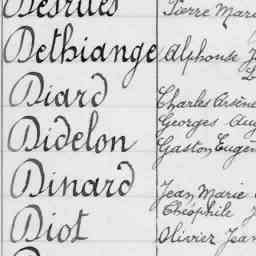 Desrues Pierre Mari
Dethiange Alphonse
Diard Charles Arsène
Georges Aug
Didelon Gaston Eugèn
Dinard Jean Marie
Théophile J
Diot Olivier Jean